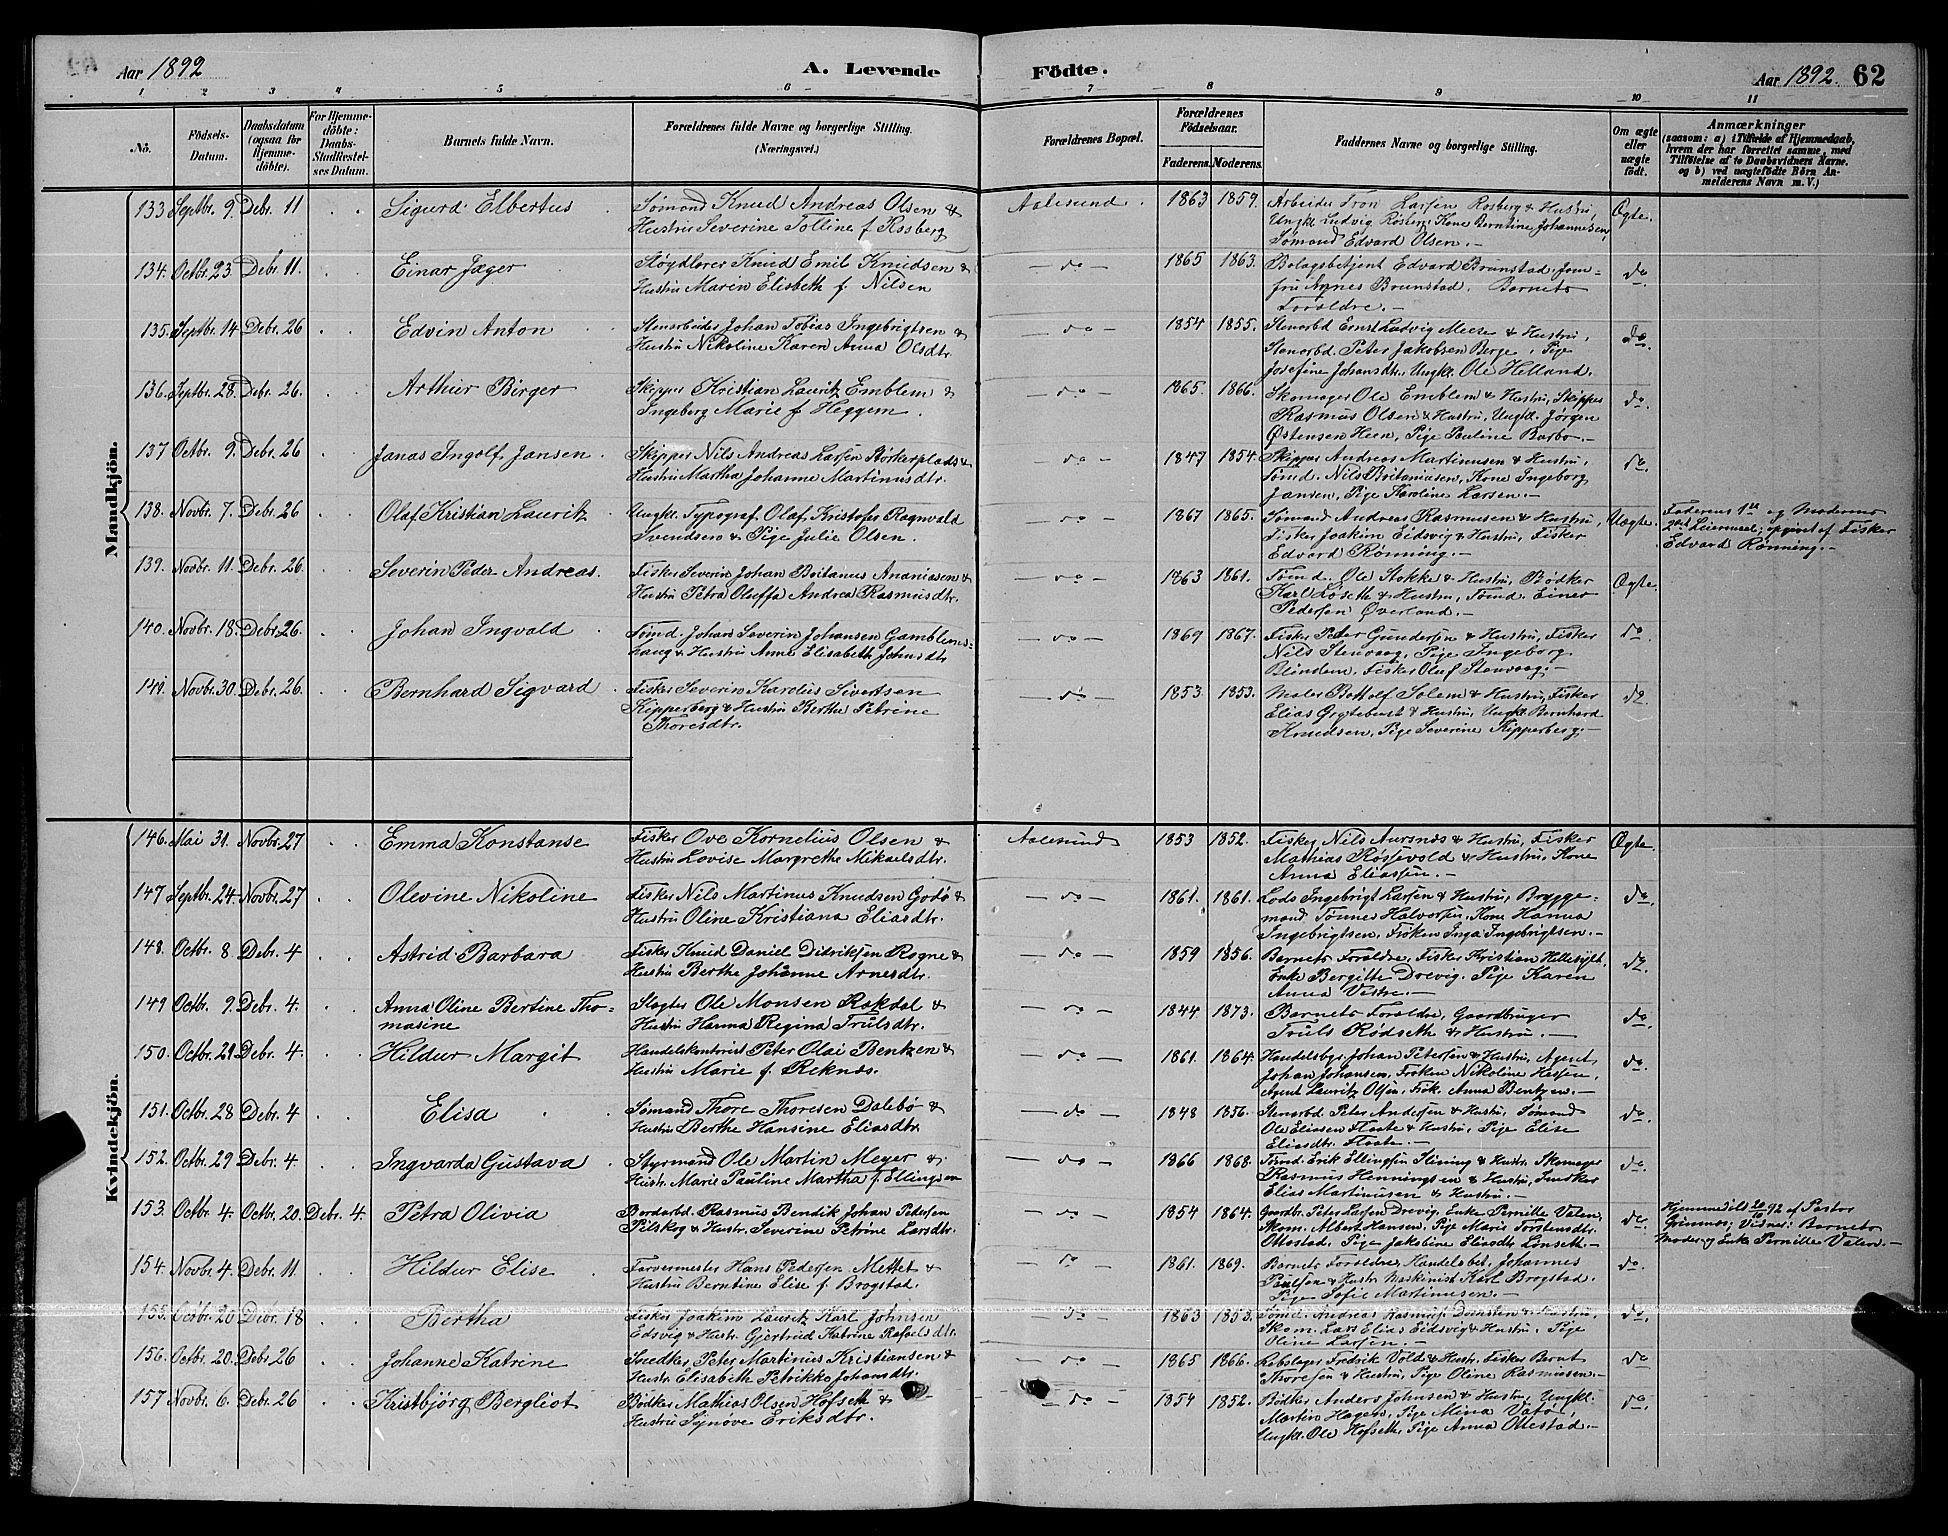 Aar 1892
A. Levende
Födte.
Aar 1892. 62
1 2 3 4 5 6 7 8 9 10 11
No.
Födsels-
Datum.
Daabsdatum
(ogsaa for
Hjemme-
döbte).
For Hjemme-
döbte:
Daabs-
Stadfæstel-
ses Datum.
Barnets fulde Navn.
Forældrenes fulde Navne og borgerlige Stilling.
(Næringsvei.)
Forældrenes Bopæl.
Forældrenes
Födselsaar.
Faderens. Moderens.
Faddernes Navne og borgerlige Stilling.
Om ægte
eller
uægte
födt.
Anmærkninger
(saasom: a) i Tilfælde af Hjemmedaab,
hvem der har forrettet samme, med
Tilföielse af to Daabsvidners Navne.
og b) ved uægtefödte Börn An-
melderens Navn m. V.)
Mandkjön.
133 Septbr. 9. Debr. 11 Sigurd Elbertus Sømand Knud Andreas Olsen & Aalesund. 1863 1859. Arbeider Tron Larsen Rosberg & Hustru, Ægte.
Hustru Severine Tolline f. Rosberg Ungkl. Ludvig Rosberg, Kone Berntine Johannesen,
Sømand Edvard Olsen.—
134. Octbr. 23 Debr. 11. Einar Jæger Sløydlærer Knud Emil Knudsen & — do — 1865 1863. Bolagsbetjent Edvard Brunstad, Jom- do
Hustru Maren Elisbeth f. Nilsen fru Agnes Brunstad, Barnets
Forældre.—
135. Septbr. 14 Debr. 26 Edvin Anton Stenarbeider Johan Tobias Ingebrigtsen & — do — 1854 1855. Stenarbd. Ernst Ludvig Meese & Hustru, do
Hustru Nikoline Karen Anna Olsdtr. Stenarbd. Peter Jakobsen Berge, Pige
Josefine Johansdtr., Ungkl. Ole Helland.
136. Septbr. 28. Debr. 26. Arthur Birger Skipper Kristian Lauritz Emblem & — do — 1865. 1866. Skomager Ole Emblem & Hustru, Skipper do.
Ingeborg Marie f Heggem. Rasmus Olsen & Hustru, Ungkl. Jørgen
Østensen Heen, Pige Pauline Barbo.—
137 Octbr. 9. Debr. 26 Janas Ingolf Jansen Skipper Nils Andreas Larsen Størkerplads & — do — 1847 1854. Skipper Andreas Martinusen & Hustru, do.
Hustru Martha Johanne Martinusdtr. Tømd. Nils Britaniusen, Kone Ingeborg
Jansen, Pige Karoline Larsen.—
138. Novbr. 7. Debr. 26 Olaf Kristian Lauritz Ungkl. Typograf Olaf Kristofer Ragnvald — do — 1867 1865. Sømand Andreas Rasmusen & Hustru, Uægte. Faderens 1ste og Moderens
Svendsen & Pige Julie Olsen. Fisker Joakim Eidsvig & Hustru, Fisker 2det Leiermaal; opgivet af Fisker
Edvard Rønning.— Edvard Rønning.—
139. Novbr. 11. Debr. 26. Severin Peder Andreas. Fisker Severin Johan Britanus Ananiasen & — do — 1863 1861. Tømd. Ole Stokke & Hustru, Bødker Ægte.
Hustru Petra Oluffa Andrea Rasmusdtr. Karl Løseth & Hustru, Tømd. Einer
Pedersen Øverland.—
140. Novbr. 18. Debr. 26. Johan Ingvald Tømd. Johan Severin Johansen Gamblems- — do — 1869 1867. Fisker Peter Gundersen & Hustru, Fisker do
haug & Hustru Anne Elisabeth Johnsdtr Nils Stenvaag, Pige Ingeborg
Blindem, Fisker Oluf Stenvaag.—
141. Novbr. 30. Debr. 26. Bernhard Sigvard Fisker Severin Karolus Sivertsen — do — 1853. 1853. Maler Bottolf Solem & Hustru, Fisker do
Kipperberg & Hustru Berthe Petrine Elias Grytebust & Hustru, Ungkl. Bernhard
Thoresdtr. Knudsen, Pige Severine Kipperberg.—
Kvindekjön.
146. Mai 31. Novbr. 27 Emma Konstanse Fisker Ove Kornelius Olsen & Aalesund 1853 1852. Fisker Nils Aursnes & Hustru, Fisker Ægte
Hustru Lovise Margrethe Mikaelsdtr. Mathias Røssevold & Hustru, Kone
Anna Eliassen.—
147. Septbr. 24. Novbr. 27 Olevine Nikoline Fisker Nils Martinus Knudsen Godø & — do — 1861. 1861. Lods Ingebrigt Larsen & Hustru, Brygge- do.
Hustru Oline Kristiana Eliasdtr. mand Tønnes Halvorsen, Kone Hanna
Ingebrigtsen, Frøken Inga Ingebrigtsen.—
148. Octbr. 8 Debr. 4 Astrid Barbara Fisker Knud Daniel Didriksen Rogne & — do — 1859 1856. Barnets Forældre, Fisker Kristian Hellesylt, do
Hustru Berthe Johanne Arnesdtr. Enke Bergitte Drevig, Pige Karen
Anna Vestre.—
149 Octbr. 9. Debr. 4. Anna Oline Bertine Tho- Slagter Ole Monsen Rakdal & — do — 1844 1873. Barnets Forældre, Gaardbruger do
masine Hustru Hanna Regina Trulsdtr. Truls Rødseth & Hustru.—
150. Octbr. 29 Debr. 4. Hildur Margit Handelskontorist Peter Olai Bentzen & — do — 1861. 1864. Handelsbgr. Johan Petersen & Hustru, Agent do.
Hustru Marie f. Reknes. Johan Johansen, Frøken Nikoline Hessen,
Agent Lauritz Olsen, Frøk. Anna Bentzen.—
151. Octbr. 28 Debr. 4 Elisa Sømand Thore Thoresen Dalebø & — do — 1848 1856. Stenarbd. Peter Andersen & Hustru, Sømand do.
Hustru Berthe Hansine Eliasdtr. Ole Eliasen Flaate & Hustru, Pige Elise
Eliasdtr. Flaate.—
152. Octbr. 29 Debr. 4. Ingvarda Gustava Styrmand Ole Martin Meyer & — do — 1866 1868. Tømd. Erik Ellingsen Slining & Hustr. Skomager do.
Hustr. Marie Pauline Martha f. Ellingsen Rasmus Henningsen & Hustru, Snedker
Elias Martinusen & Hustru.—
153. Octbr. 4. Octbr. 20. Debr. 4. Petra Olivia Bordarbd. Rasmus Bendik Johan Pedersen — do — 1854 1864. Gaardbr. Peter Larsen Drevig, Enke Pernille Valen, do. Hjemmedøbt 20/10 92 af Pastor
Pilskog & Hustr. Severine Petrine Larsdtr. Skom. Albert Hansen, Pige Marie Torstensdtr. Grimnes; Vidner: Barnets
Ottestad, Pige Jakobine Eliasdtr Lønseth.— Moder og Enke Pernille Valen.—
154. Novbr. 4. Debr. 11. Hildur Elise Farvermester Hans Pedersen Mettet & — do — 1861. 1869. Barnets Forældre, Handelsbet. Johannes do.
Hustru Berntine Elise f. Brogstad. Paulsen & Hustr. Maskinist Karl Brogstad.
Pige Sofie Martinusen.—
155. Octbr. 20 Debr. 18 Bertha Fisker Joakim Lauritz Karl Johnsen — do — 1863 1853. Sømd. Andreas Rasmus. & Hustru, do.
Edsvig & Hustr. Gjertrud Katrine Rafaelsdtr. Skom. Lars Elias Eidsvig & Hustru, Pige
Oline Larsen.—
156. Octbr. 20. Debr. 26 Johanne Katrine Snedker Peter Martinus Kristiansen & — do — 1865 1866. Fredrik Vold & Hustr. Fisker Bernt do
Hustr. Elisabeth Petrikke Johansdtr. Thoresen & Hustru, Pige Oline Rasmusen.—
157 Novbr. 6. Debr. 26 Kristbjørg Bergliot Bødker Mathias Olsen Hofseth & — do — 1854 1852. Bødker Anders Johnsen & Hustru, Ungkl. do.
Hustru Synøve Eriksdtr. Martin Hagen, Pige Mina Vatø,
Ungkl. Ole Hofseth, Pige Anna Ottestad.—